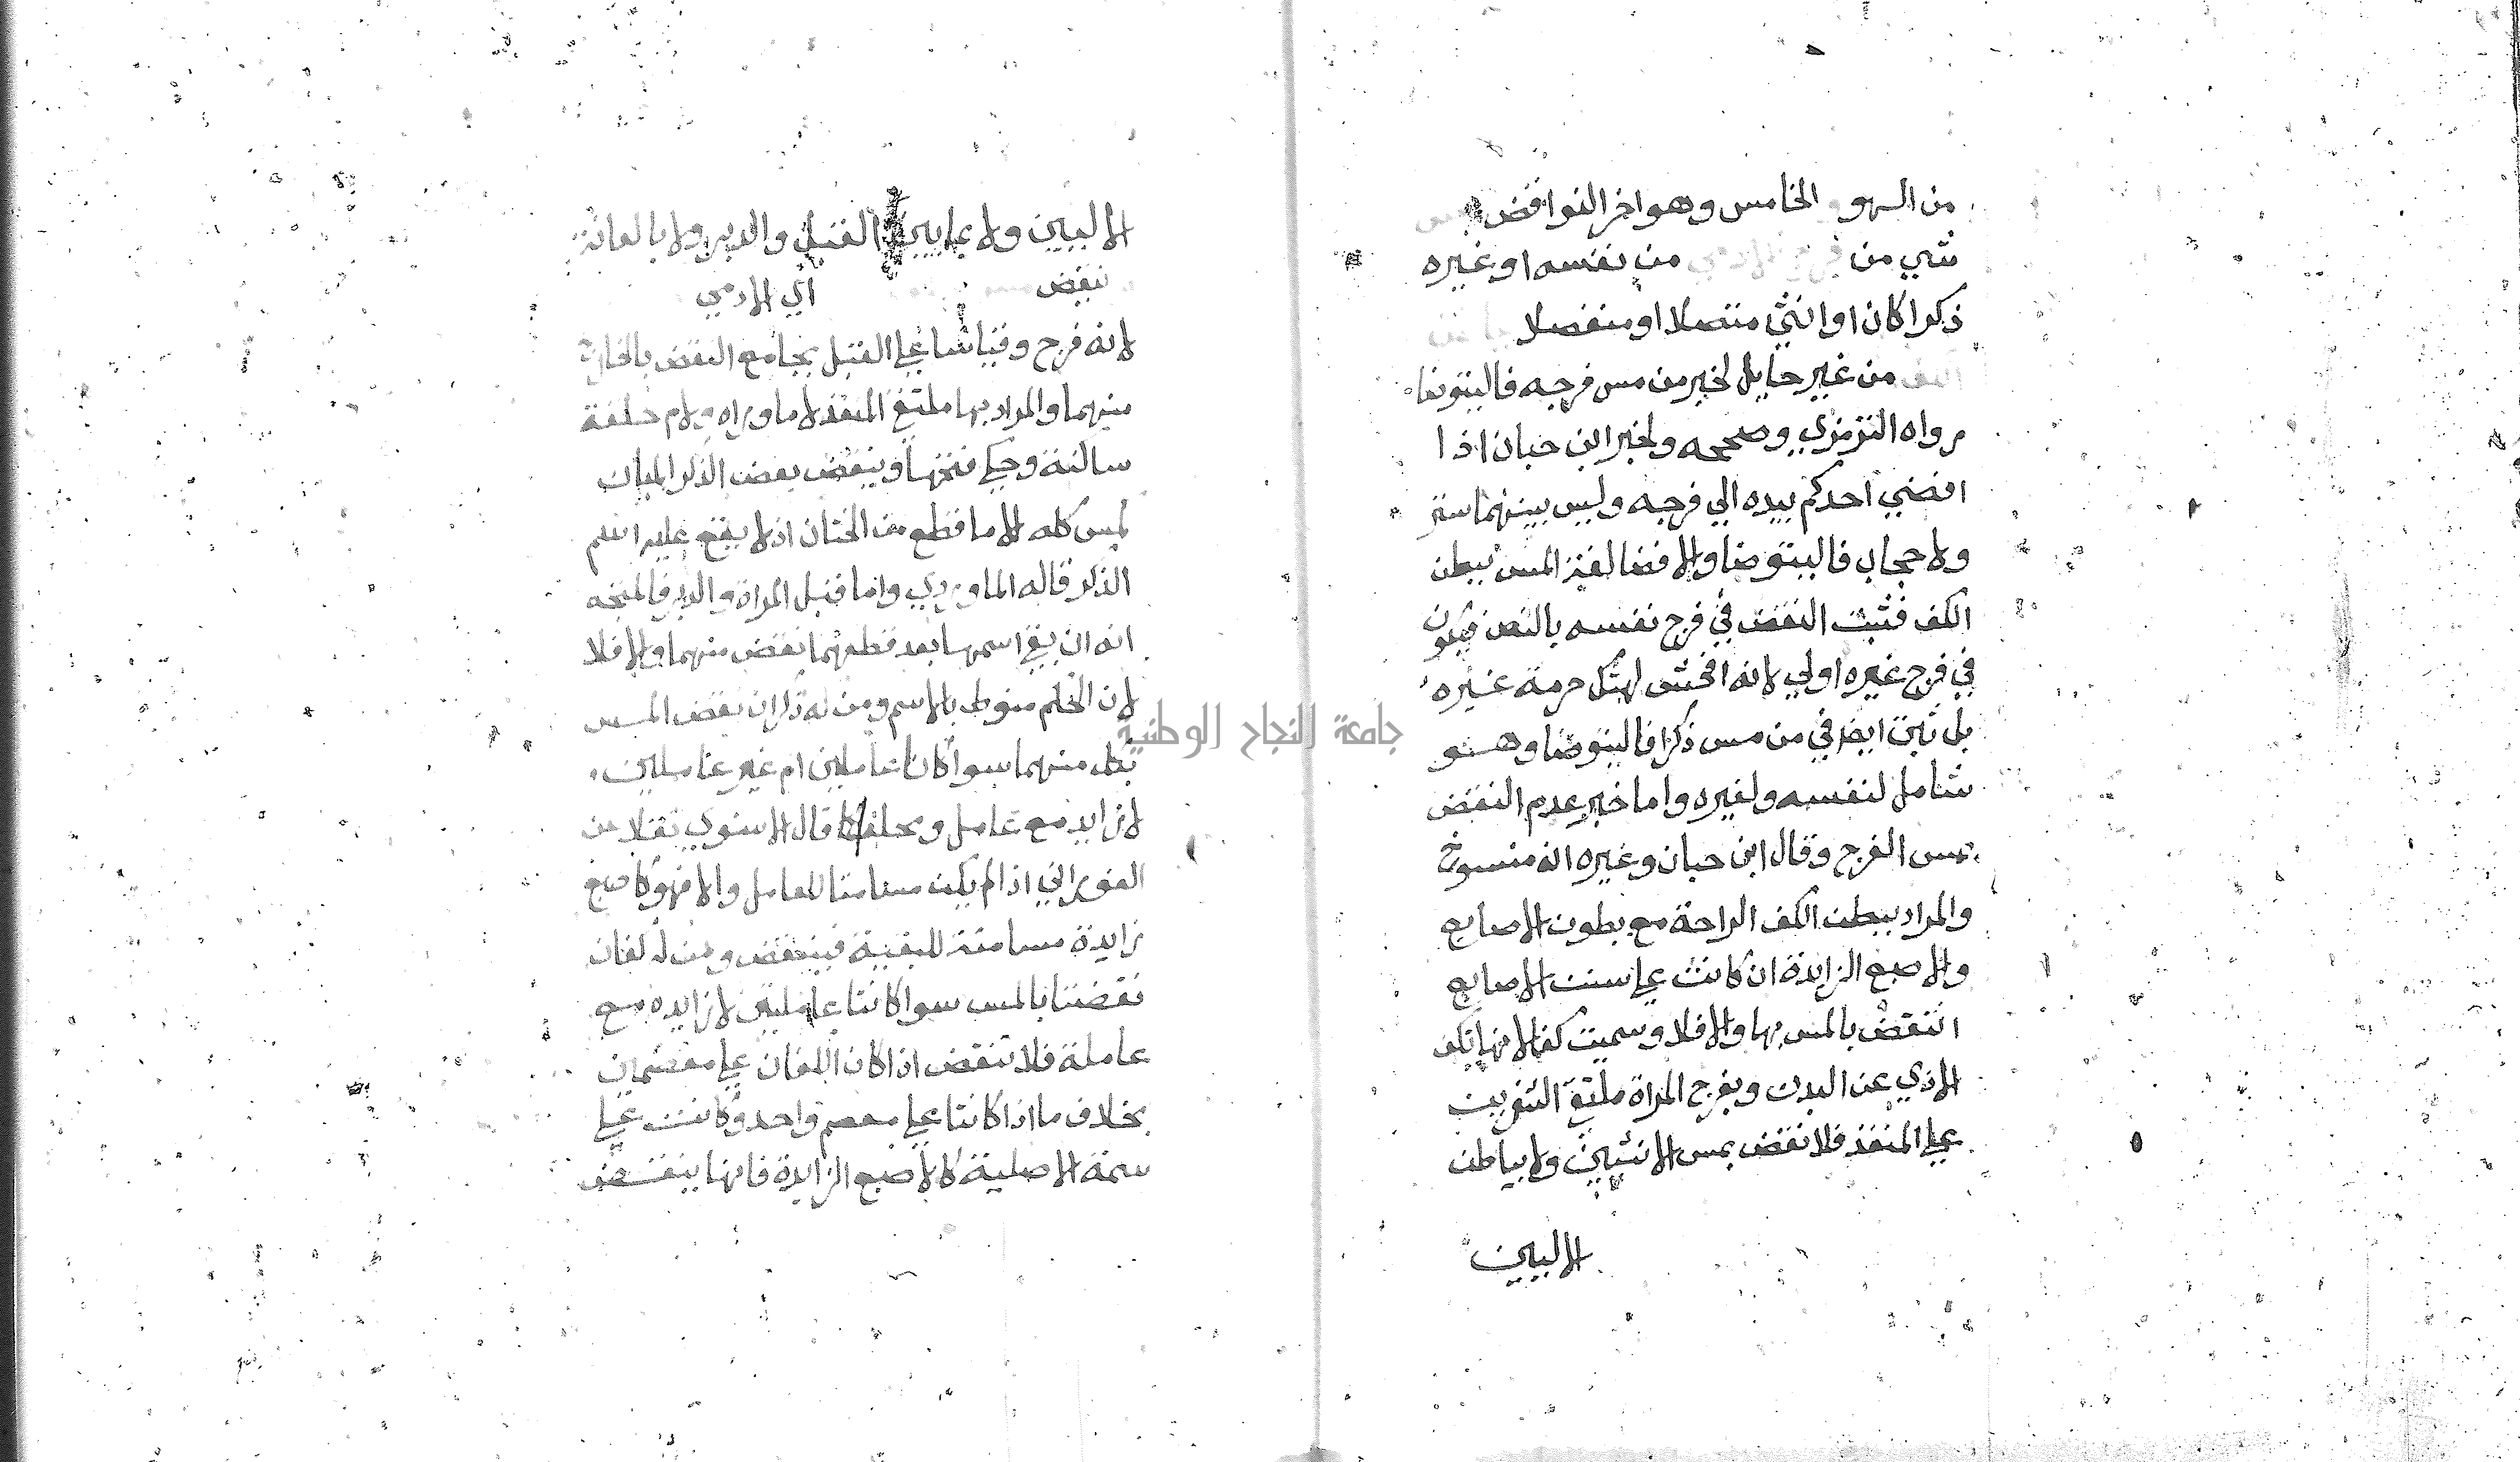 من السهو و الخامس وهو اخر النواقض مس
شي من فرج الادمي من نفسه او غيره
ذكرا كان او انثي متصلا او منفصلا
الكف من غير حايل لخبر من مس فرجه فاليتوضا
رواه الترمذي وصححه ولخبر ابن حبان اذا
افضي احدكم بيده الي فرجه وليس بينهما ستر
ولا حجاب فاليتوضا والافضا لغة المس ببطن
الكف فثبت النقض في فرج نفسه بالنص فيكون
في فرج غيره اولي لانه افحش لهتك حرمة غيره
بل ثبت ايضا في من مس ذكرا فاليتوضا وهو
شامل لنفسه ولغيره واما خبر عدم النقض
بمس الفرج وقال ابن حبان وغيره انه منسوخ
والمراد ببطن الكف الراحة مع بطون الاصابع
والاصبع الزايدة ان كانت علي سنت الاصابع
انتقض بالمس بها والا فلا وسميت كفا لانها تكف
الاذي عن البدن وبفرج المراة ملتقي الشفرين
علي المنفذ فلا نقض بمس الانثيين ولا بباطن
الاليين
الاليين ولا بما بين القبل والدبر ولا بالعانة
نقض اي الادمي
لانه فرج وقياسا علي القبل بجامع النقض بالخارج
منهما والمراد بها ملتقي المنفذ لا ما وراه ولام حلقة
ساكنة وحكي فتحها وينقض بعض الذكر المبان
لمس كله الا ما قطع من الختان اذ لا يقع عليه اسم
الذكر قاله الماوردي واما قبل المراة والدبر فالمتجه
انه ان بقي اسمها بعد قطعهما نقض منهما والا فلا
لان الحكم منوط بالاسم ومن له ذكران نقض المس
بكل منهما سوا كانا عاملين ام غير عاملين
لا زايد مع عامل ومحله كما قال الاسنوي نقلا عن
الفوراني اذا لم يكن مسامتا للعامل والا فهو كاصبع
زايدة مسامتة للبقية فينتقض ومن له كفان
نقضتا بالمس سوا كانتا عاملتين لا زايده مع
عاملة فلا تنقض اذا كان الكفان علي معصمين
بخلاف ما اذا كانتا علي معصم واحد وكانت علي
سمة الاصلية كالاصبع الزايدة فانها ينقض
جامعة النجاح الوطنية